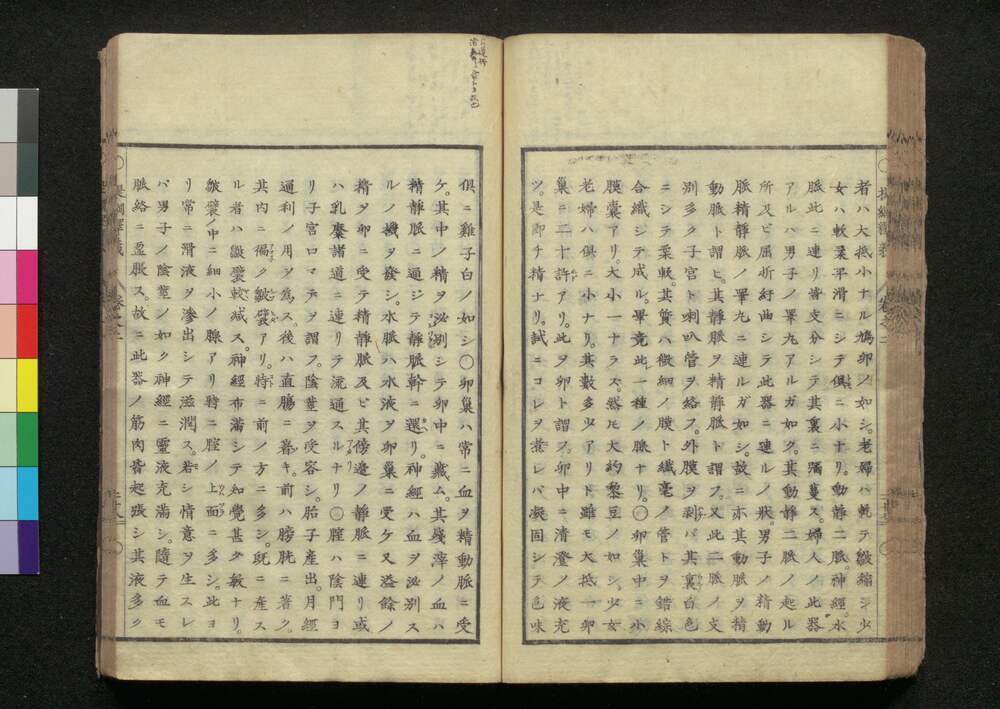 者ハ大抵小ナル鳩卵ノ如シ。老婦ハ乾テ皺縮シ少
女ハ軟柔平滑ニシテ倶ニ小ナリ。動静二脈。神経。水
脈此ニ連リ皆支分シテ其裏ニ蠲蔓ス。婦人ノ此器
アルハ男子ノ睪丸アルガ如ク。其動静二脈ノ起ル
所及ビ屈折紆曲シテ此器ニ連ルノ状。男子ノ精動
脈精静脈ノ睪丸ニ連ルガ如シ。故ニ亦其動脈ヲ精
動脈ト謂ヒ。其静脈ヲ精静脈ト謂フ。又此二脈ノ支
別多ク子宮ト喇叭管ヲ絡フ。外膜ヲ剥バ其裏白色
ニシテ柔軟。其質ハ微細ノ膜ト繊毫ノ管トヲ錯綜
合織シテ成ル。畢竟此一種ノ腺ナリ。〇卵巣中ニ小
膜嚢アリ。大小一ナラズ。然𪜈大約黎豆ノ如シ。少女
老婦ハ倶ニ小ナリ。其数多少アリト雖モ大抵一卵
巣ニ二十許アリ。此ヲ卵ト謂フ。卵中ニ清澄ノ液充
ツ。是即チ精ナリ。試ニコレヲ煮レバ凝固シテ色味
倶ニ雞子白ノ如シ〇卵巣ハ常ニ血ヲ精動脈ニ受
ケ。其中ノ精ヲ泌別シテ卵中ニ蔵ム。其残滓ノ血ハ
精静脈ニ通ジテ静脈幹ニ還リ。神経ハ血ヲ泌別ス
ルノ機ヲ発シ。水脈ハ水液ヲ卵巣ニ受ケ又溢餘ノ
精ヲ卵ニ受テ精静脈及ビ其傍邉ノ静脈ニ連リ或
ハ乳糜諸道ニ連リテ流通スルナリ〇膣ハ陰門ヨ
リ子宮口マデヲ謂フ。陰茎ヲ受容シ。胎子産出。月経
通利ノ用ヲ為ス。後ハ直腸ニ着キ。前ハ膀胱ニ着ク。
其内ニ徧ク皺襞アリ。特ニ前ノ方ニ多シ。既ニ産ス
ル者ハ皺襞較減ス。神経布満シテ知覚甚タ敏ナリ。
皺襞ノ中ニ細小ノ腺アリ特ニ膣ノ上面ニ多シ。此ヨ
リ常ニ滑液ヲ滲出シテ滋潤ス。若シ情意ヲ生スレ
バ男子ノ陰茎ノ如ク神経ニ霊液充満シ。随テ血モ
脈絡ニ盈脹ス。故ニ此器ノ筋肉皆起張シ其液多ク